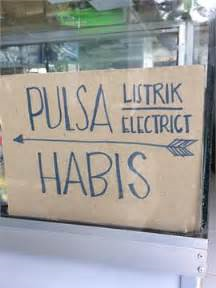 PULSA LISTRIK
ELECTRICT
HABIS